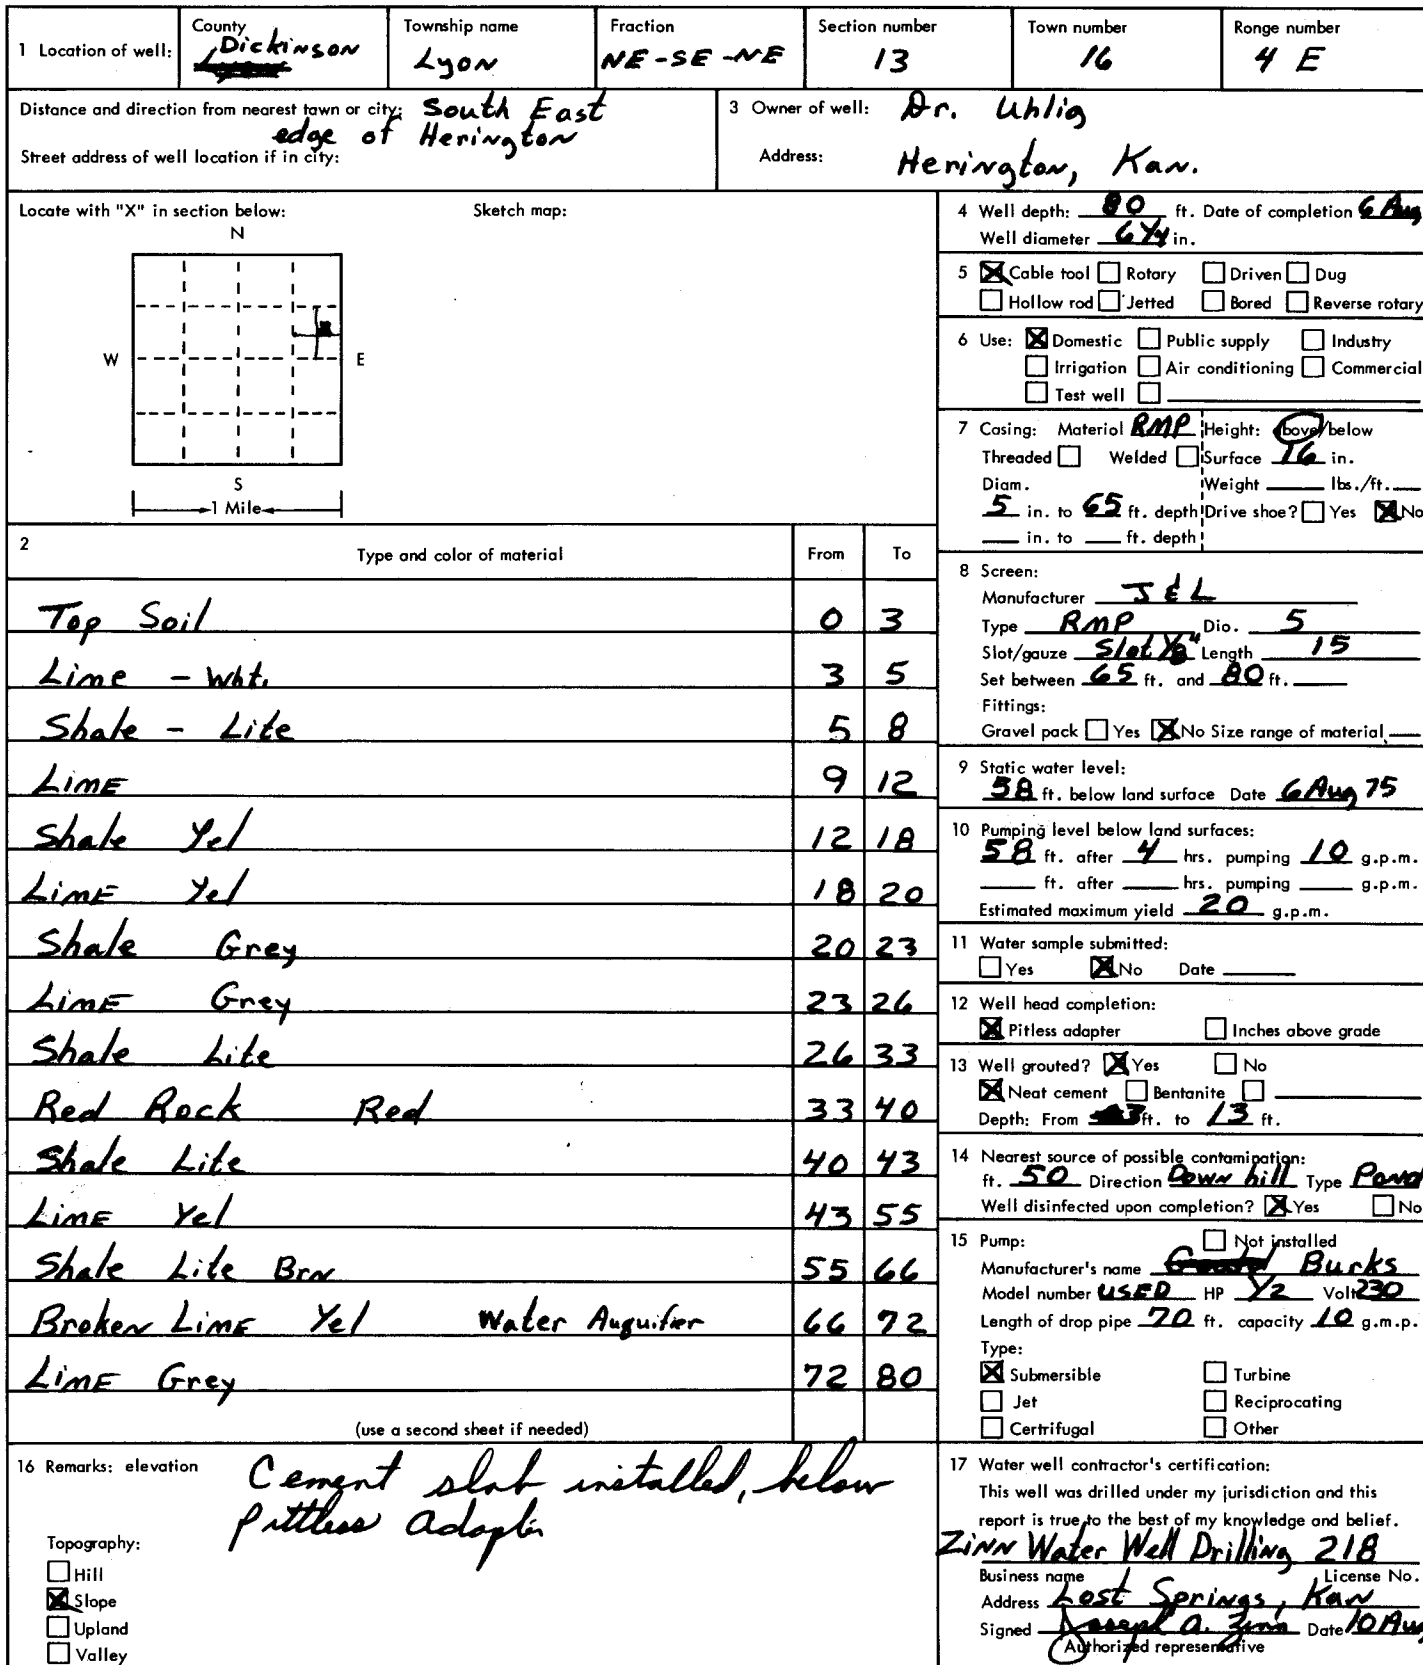 1 Location of well: County Dickinson Township name Lyon Fraction NE-SE-NE Section number 13 Town number 16 Range number 4 E
Distance and direction from nearest town or city: South East
edge of Herington
Street address of well location if in city:
3 Owner of well: Dr. Uhlig
Address: Herington, Kan.
Locate with "X" in section below: Sketch map:
N
W E
S
1 Mile
2 Type and color of material From To
Top Soil 0 3
Lime - Wht. 3 5
Shale - Lite 5 8
Lime 9 12
Shale Yel 12 18
Lime Yel 18 20
Shale Grey 20 23
Lime Grey 23 26
Shale Lite 26 33
Red Rock Red 33 40
Shale Lite 40 43
Lime Yel 43 55
Shale Lite Brn 55 66
Broken Lime Yel Water Auguifier 66 72
Lime Grey 72 80
(use a second sheet if needed)
4 Well depth: 80 ft. Date of completion 6 Aug
Well diameter 6 1/4 in.
5 Cable tool Rotary Driven Dug
Hollow rod Jetted Bored Reverse rotary
6 Use: Domestic Public supply Industry
Irrigation Air conditioning Commercial
Test well
7 Casing: Material RMP Height: above/below
Threaded Welded Surface 16 in.
Diam. Weight lbs./ft.
5 in. to 65 ft. depth Drive shoe? Yes No
in. to ft. depth
8 Screen:
Manufacturer J & L
Type RMP Dia. 5
Slot/gauze Slot 1/8" Length 15
Set between 65 ft. and 80 ft.
Fittings:
Gravel pack Yes No Size range of material
9 Static water level:
58 ft. below land surface Date 6 Aug 75
10 Pumping level below land surfaces:
58 ft. after 4 hrs. pumping 10 g.p.m.
ft. after hrs. pumping g.p.m.
Estimated maximum yield 20 g.p.m.
11 Water sample submitted:
Yes No Date
12 Well head completion:
Pitless adapter Inches above grade
13 Well grouted? Yes No
Neat cement Bentanite
Depth: From 3 ft. to 13 ft.
14 Nearest source of possible contamination:
ft. 50 Direction Down hill Type Pond
Well disinfected upon completion? Yes No
15 Pump: Not installed
Manufacturer's name Burks
Model number USED HP 1/2 Volt 230
Length of drop pipe 70 ft. capacity 10 g.m.p.
Type:
Submersible Turbine
Jet Reciprocating
Certrifugal Other
16 Remarks: elevation Cement slab installed, below
Pittless adapter
Topography:
Hill
Slope
Upland
Valley
17 Water well contractor's certification:
This well was drilled under my jurisdiction and this
report is true to the best of my knowledge and belief.
Zinn Water Well Drilling 218
Business name License No.
Address Lost Springs, Kan
Signed Joseph A. Zinn Date 10 Aug
Authorized representative